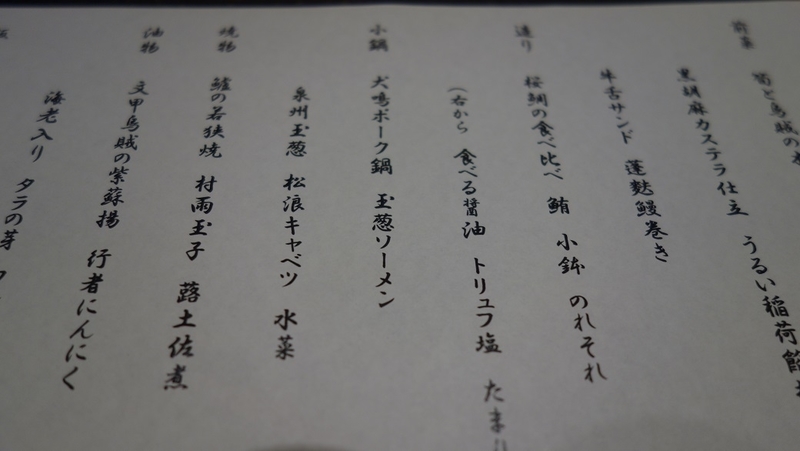 前菜 筍と烏賊の
黒胡麻カステラ仕立 うるい稲荷餡
牛舌サンド 蓬麩鰻巻き
造り 桜鯛の食べ比べ 鮪 小鉢 のれそれ
(右から 食べる醤油 トリュフ塩 たまり
小鍋 犬鳴ポーク鍋 玉葱ソーメン
泉州玉葱 松浪キャベツ 水菜
焼物 鱸の若狭焼 村雨玉子 蕗土佐煮
油物 文甲烏賊の紫蘇揚 行者にんにく
海老入り タラの芽